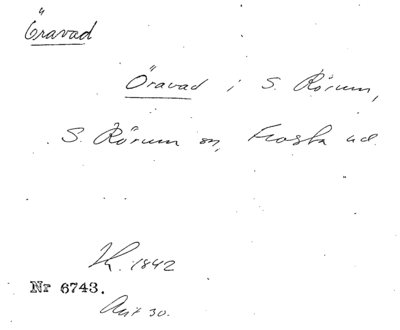 Öravad
Öravad i S. Rörum,
S. Rörum sn, Frosta hd.
K. 1842
Nr 6743.
Ant 30.